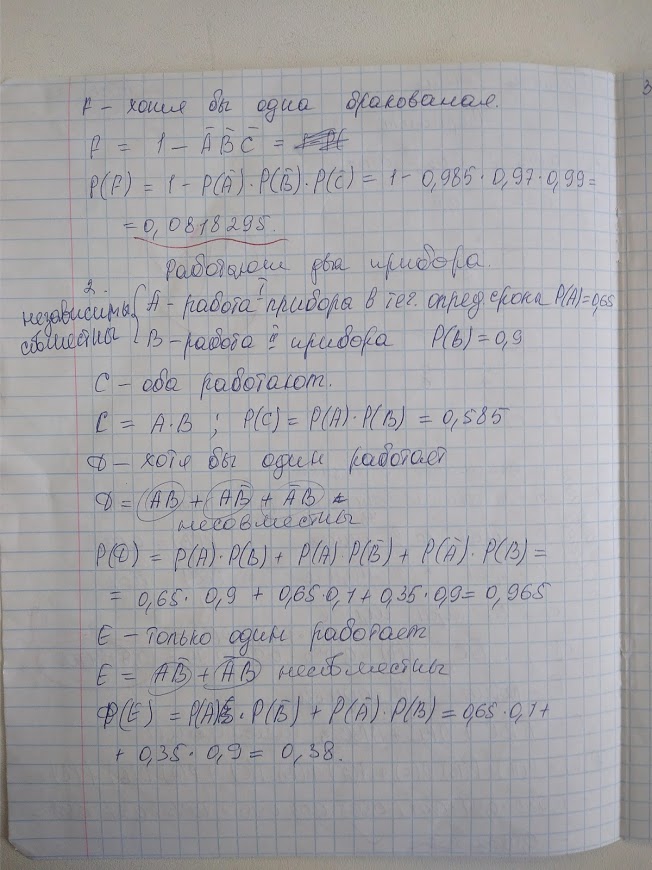 F – хотя бы одна бракованая.
F = 1 – A̅ B̅ C̅ =
P(F) = 1 – P(A̅)·P(B̅)·P(C̅) = 1 – 0,985·0,97·0,99=
= 0,0818295.
Работают два прибора.
2.
независимы
совместны
A – работа I прибора в теч. опред срока P(A)=0,65
B – работа II прибора P(B) = 0,9
C – оба работают.
C = A·B ; P(C) = P(A)·P(B) = 0,585
D – хотя бы один работает
D = AB + AB̅ + A̅B
несовместны
P(D) = P(A)·P(B) + P(A) P(B̅) + P(A̅)·P(B) =
= 0,65·0,9 + 0,65·0,1 + 0,35·0,9 = 0,965
E – только один работает
E = AB̅ + A̅B несовместны
P(E) = P(A)·P(B̅) + P(A̅)·P(B) = 0,65·0,1+
+ 0,35·0,9 = 0,38.
3